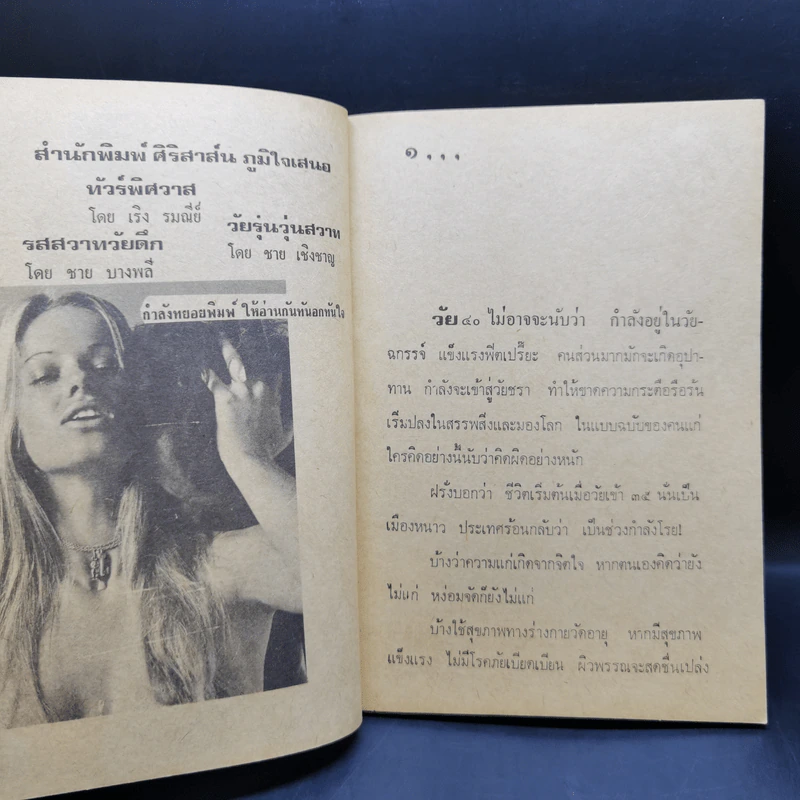 สำนักพิมพ์ ศิริสาส์น ภูมิใจเสนอ
ทัวร์พิศวาส
โดย เริง รมณีย์
วัยรุ่นวุ่นสวาท
โดย ชาย เชิงชาญ
รสสวาทวัยดึก
โดย ชาย บางพลี
กำลังทยอยพิมพ์ ให้อ่านกันทันอกทันใจ
๑ . . .
วัย ๔๐ ไม่อาจจะนับว่า กำลังอยู่ในวัย-
ฉกรรจ์ แข็งแรงฟิตเปรี๊ยะ คนส่วนมากมักจะเกิดอุปา-
ทาน กำลังจะเข้าสู่วัยชรา ทำให้ขาดความกระตือรือร้น
เริ่มปลงในสรรพสิ่งและมองโลก ในแบบฉบับของคนแก่
ใครคิดอย่างนี้นับว่าคิดผิดอย่างหนัก
ฝรั่งบอกว่า ชีวิตเริ่มต้นเมื่อวัยเข้า ๓๕ นั่นเป็น
เมืองหนาว ประเทศร้อนกลับว่า เป็นช่วงกำลังโรย!
บ้างว่าความแก่เกิดจากจิตใจ หากตนเองคิดว่ายัง
ไม่แก่ หง่อมจัดก็ยังไม่แก่
บ้างใช้สุขภาพทางร่างกายวัดอายุ หากมีสุขภาพ
แข็งแรง ไม่มีโรคภัยเบียดเบียน ผิวพรรณจะสดชื่นเปล่ง